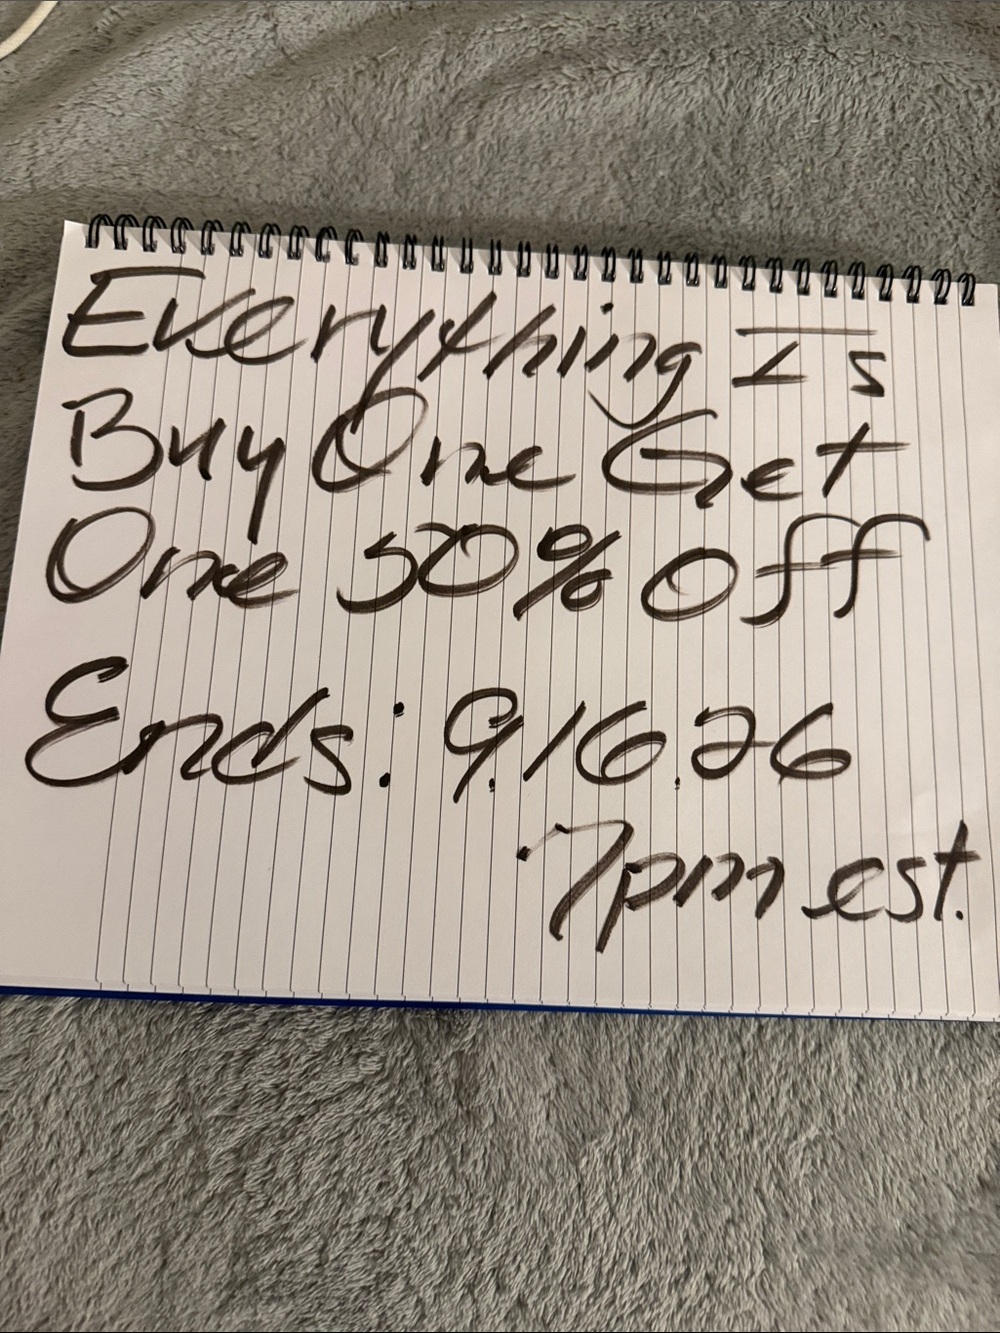 Everything Is
Buy One Get
One 50% Off
Ends: 9.16.26
7pm est.